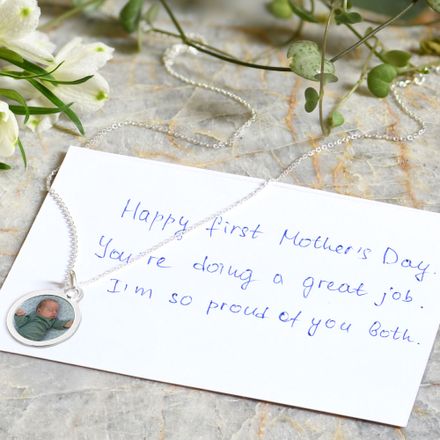 Happy first Mother's Day.
You're doing a great job.
I'm so proud of you both.